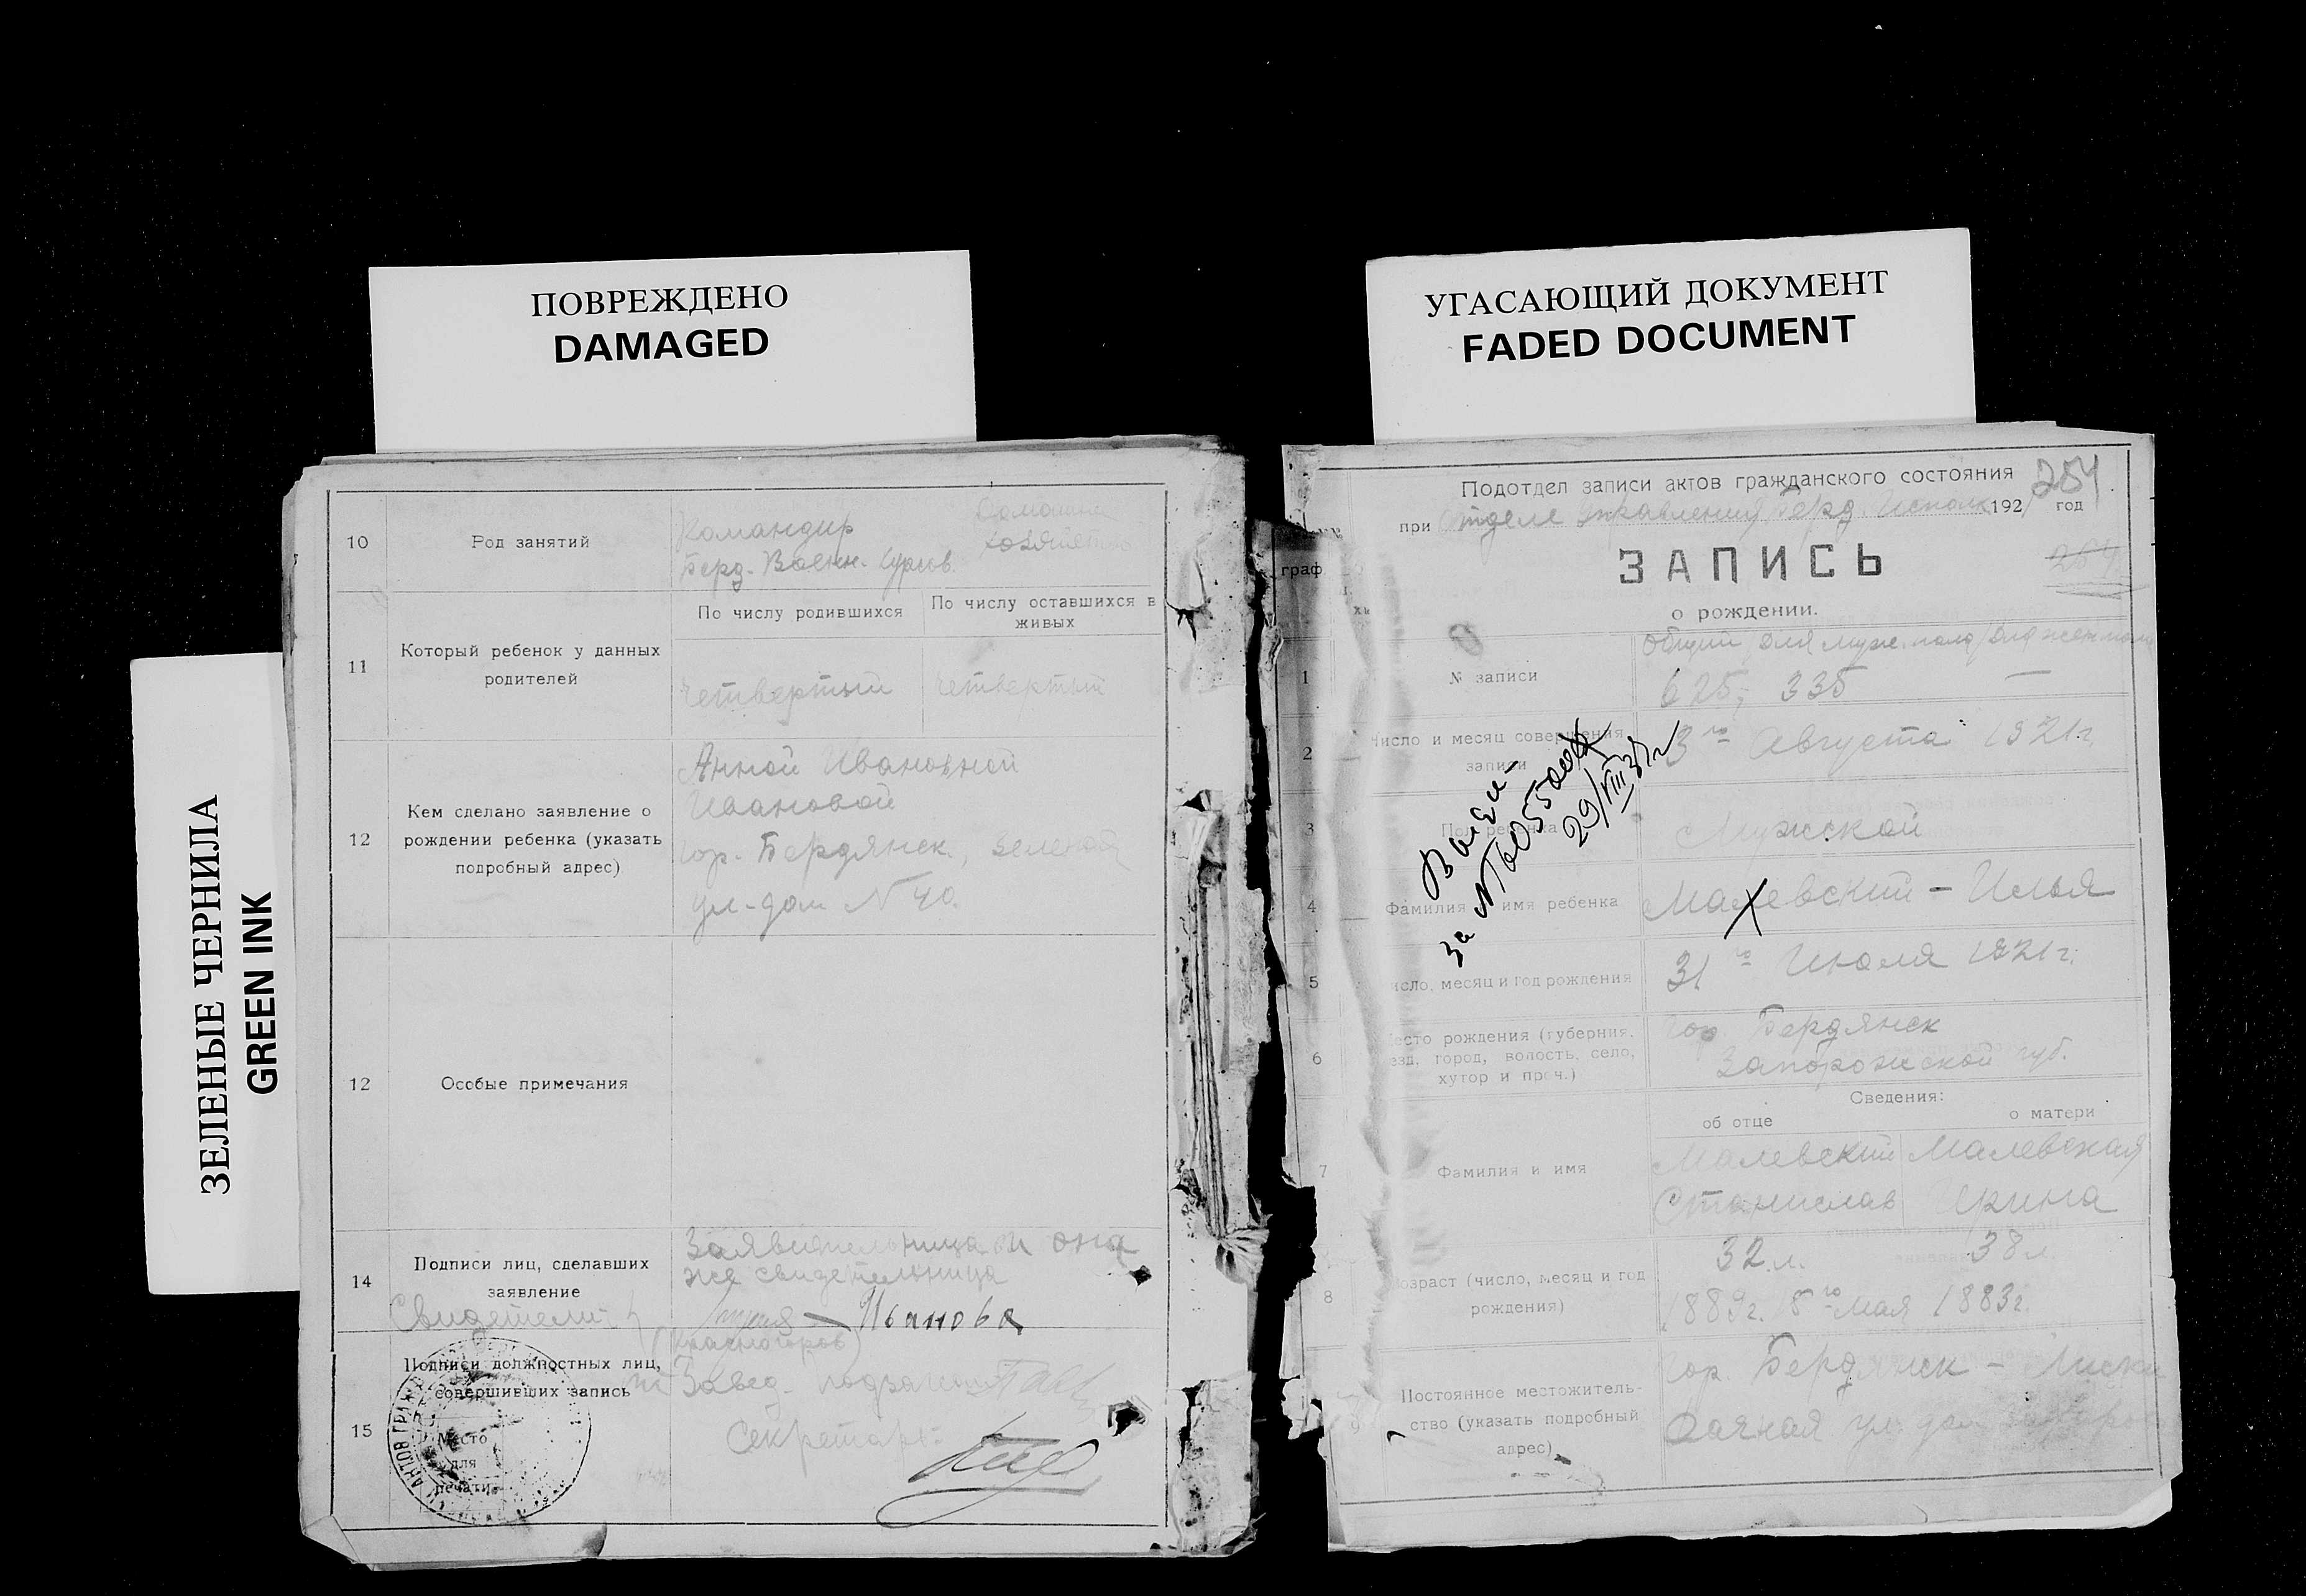 ПОВРЕЖДЕНО
DAMAGED
УГАСАЮЩИЙ ДОКУМЕНТ
FADED DOCUMENT
ЗЕЛЕНЫЕ ЧЕРНИЛА
GREEN INK
10
Род занятий
Командир
Берд. Воен. Курсов.
11
Который ребенок у данных
родителей
По числу родившихся
По числу оставшихся в
живых
четвертый
четвертый
12
Кем сделано заявление о
рождении ребенка (указать
подробный адрес)
Анной Ивановной
Ивановой
гор. Бердянск, Зеленой
ул. дом N 40.
12
Особые примечания
14
Подписи лиц, сделавших
заявление
Свидетели:
Заявительница и она
же свидетельница
Иванова
15
Подписи должностных лиц,
совершивших запись
Место
для
печати
Завед.
Секретарь:
Подотдел записи актов гражданского состояния
254
при Отделе Управления Берд. Исполк. 1921 год
ЗАПИСЬ
254
о рождении.
граф
общий для муж. пола для жен. пола
1
№ записи
625; 335 —
2
число и месяц совершения
записи
3го Августа 1921г.
3
Пол ребенка
Мужской
4
Фамилия и имя ребенка
Малевский - Илья
5
число, месяц и год рождения
31го Июля 1921г.
6
место рождения (губерния,
уезд, город, волость, село,
хутор и проч.)
гор. Бердянск
Запорожской губ.
Сведения:
об отце
о матери
7
Фамилия и имя
Малевский
Малевская
Станислав
Ирина
8
возраст (число, месяц и год
рождения)
32 л.
38 л.
1889г.
мая 1883г.
9
Постоянное местожитель-
ство (указать подробный
адрес)
гор. Бердянск -
ул. дом
за №
29/VIII